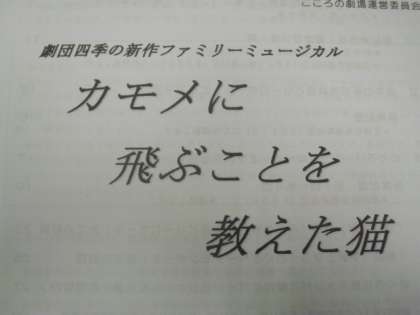 こころの劇場運営委員会
劇団四季の新作ファミリーミュージカル
カモメに
飛ぶことを
教えた猫